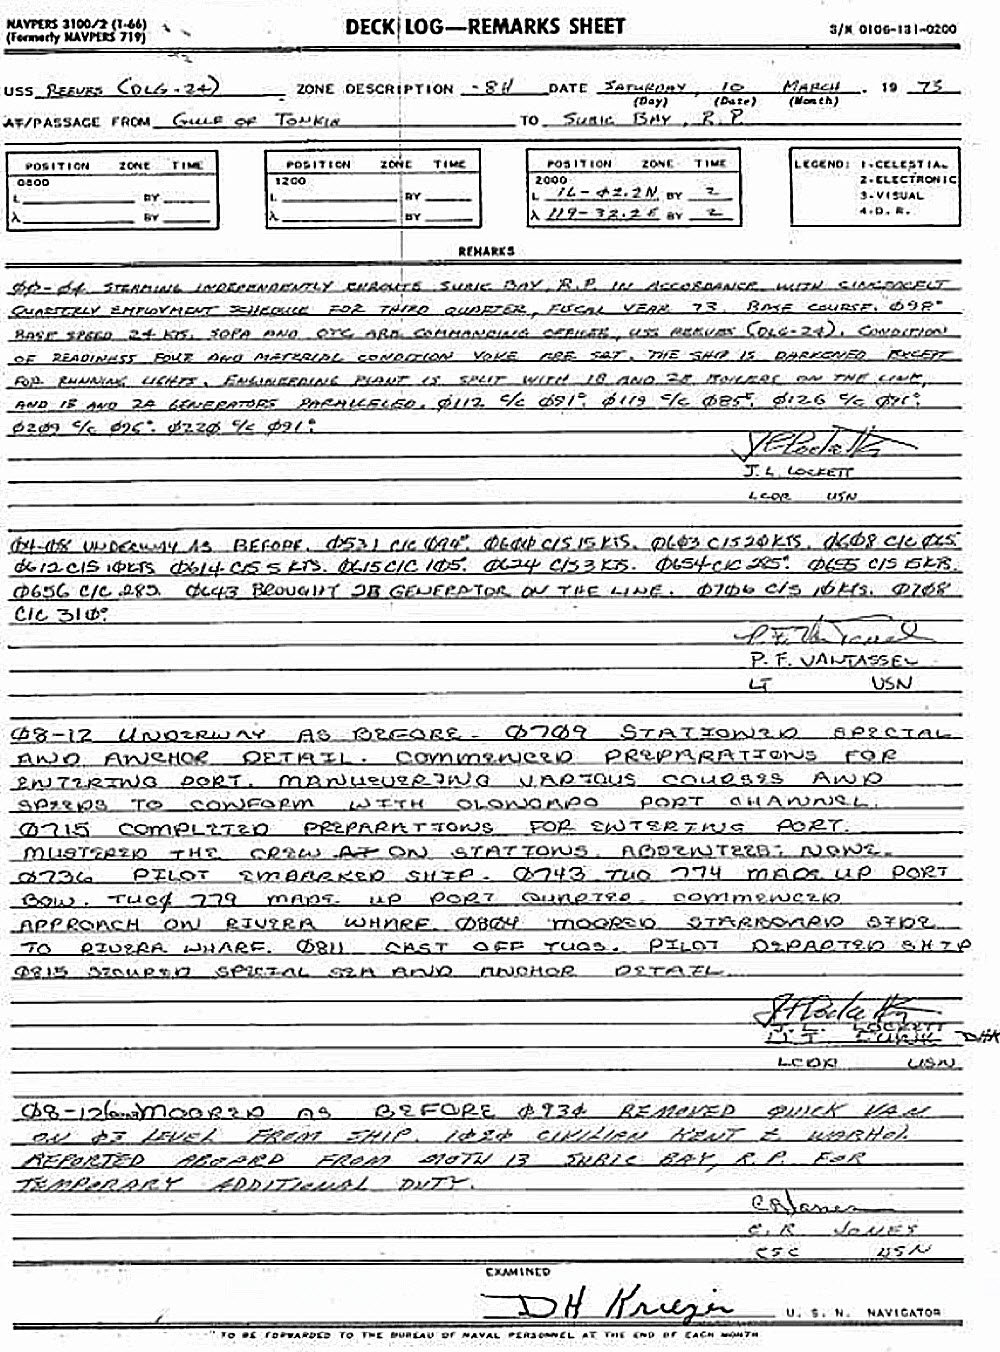 NAVPERS 3100/2 (1-66)
(Formerly NAVPERS 719)
DECK LOG—REMARKS SHEET
S/N 0106-131-0200
USS REEVES (DLG-24) ZONE DESCRIPTION -8H DATE SATURDAY, 10 MARCH, 19 73
(Day) (Date) (Month)
AT/PASSAGE FROM GULF OF TONKIN TO SUBIC BAY, R.P.
POSITION ZONE TIME
0800
L BY
λ BY
POSITION ZONE TIME
1200
L BY
λ BY
POSITION ZONE TIME
2000
L 16-Ø2.2N BY 2
λ 119-32.2E BY 2
LEGEND: 1-CELESTIAL
2-ELECTRONIC
3-VISUAL
4-D. R.
REMARKS
ØØ-Ø4 STEAMING INDEPENDENTLY ENROUTE SUBIC BAY, R.P. IN ACCORDANCE WITH
QUARTERLY EMPLOYMENT SCHEDULE FOR THIRD QUARTER, FISCAL YEAR 73. BASE COURSE. Ø98°
BASE SPEED 24 KTS. SOPA AND OTC ARE COMMANDING OFFICER, USS REEVES (DLG-24). CONDITION
OF READINESS FOUR AND MATERIAL CONDITION YOKE ARE SET. THE SHIP IS DARKENED EXCEPT
FOR RUNNING LIGHTS. ENGINEERING PLANT IS SPLIT WITH 1B AND 2B BOILERS ON THE LINE,
AND 1B AND 2A GENERATORS PARALLELED. Ø112 C/C Ø91°. Ø119 C/C Ø85°. Ø126 C/C
Ø2Ø9 C/C Ø220 C/C Ø91°.
J. L. LOCKETT
LCDR USN
Ø4-Ø8 UNDERWAY AS BEFORE. Ø531 C/C Ø94°. Ø6ØØ C/S 15 KTS. Ø6Ø3 C/S 20 KTS. Ø6Ø8 C/C
Ø612 C/S 1Ø KTS Ø614 C/S 5 KTS. Ø615 C/C 1Ø5°. Ø624 C/S 3 KTS. Ø654 C/C 285°. Ø655 C/S 15 KTS.
Ø656 C/C 283. Ø643 BROUGHT 2B GENERATOR ON THE LINE. Ø7Ø6 C/S 1Ø KTS. Ø7Ø8
C/C 31Ø°
P. F. VANTASSEL
LT USN
Ø8-12 UNDERWAY AS BEFORE. Ø7Ø9 STATIONED SPECIAL
AND ANCHOR DETAIL. COMMENCED PREPARATIONS FOR
ENTERING PORT. MANUEVERING VARIOUS COURSES AND
SPEEDS TO CONFORM WITH OLONGAPO PORT CHANNEL.
Ø715 COMPLETED PREPARATIONS FOR ENTERING PORT.
MUSTERED THE CREW AT ON STATIONS. ABSENTEES: NONE.
Ø736 PILOT EMBARKED SHIP. Ø743 TUG 774 MADE UP PORT
BOW. TUG 779 MADE UP PORT QUARTER. COMMENCED
APPROACH ON RIVERA WHARF. Ø8Ø4 MOORED STARBOARD SIDE
TO RIVERA WHARF. Ø811 CAST OFF TUGS. PILOT DEPARTED SHIP
Ø815 SECURED SPECIAL SEA AND ANCHOR DETAIL.
J. L. LOCKETT
DHK
LCDR USN
Ø8-12 MOORED AS BEFORE Ø93Ø REMOVED QUICK VAN
ON Ø3 LEVEL FROM SHIP. 1Ø2Ø CIVILIAN KENT E. WARHOL
REPORTED ABOARD FROM MOTU 13 SUBIC BAY, R.P. FOR
TEMPORARY ADDITIONAL DUTY.
C R Jones
C. R JONES
CSC USN
EXAMINED
DH Krueger U. S. N. NAVIGATOR
TO BE FORWARDED TO THE BUREAU OF NAVAL PERSONNEL AT THE END OF EACH MONTH